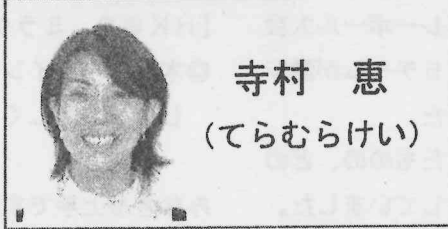 寺村　恵
（てらむらけい）